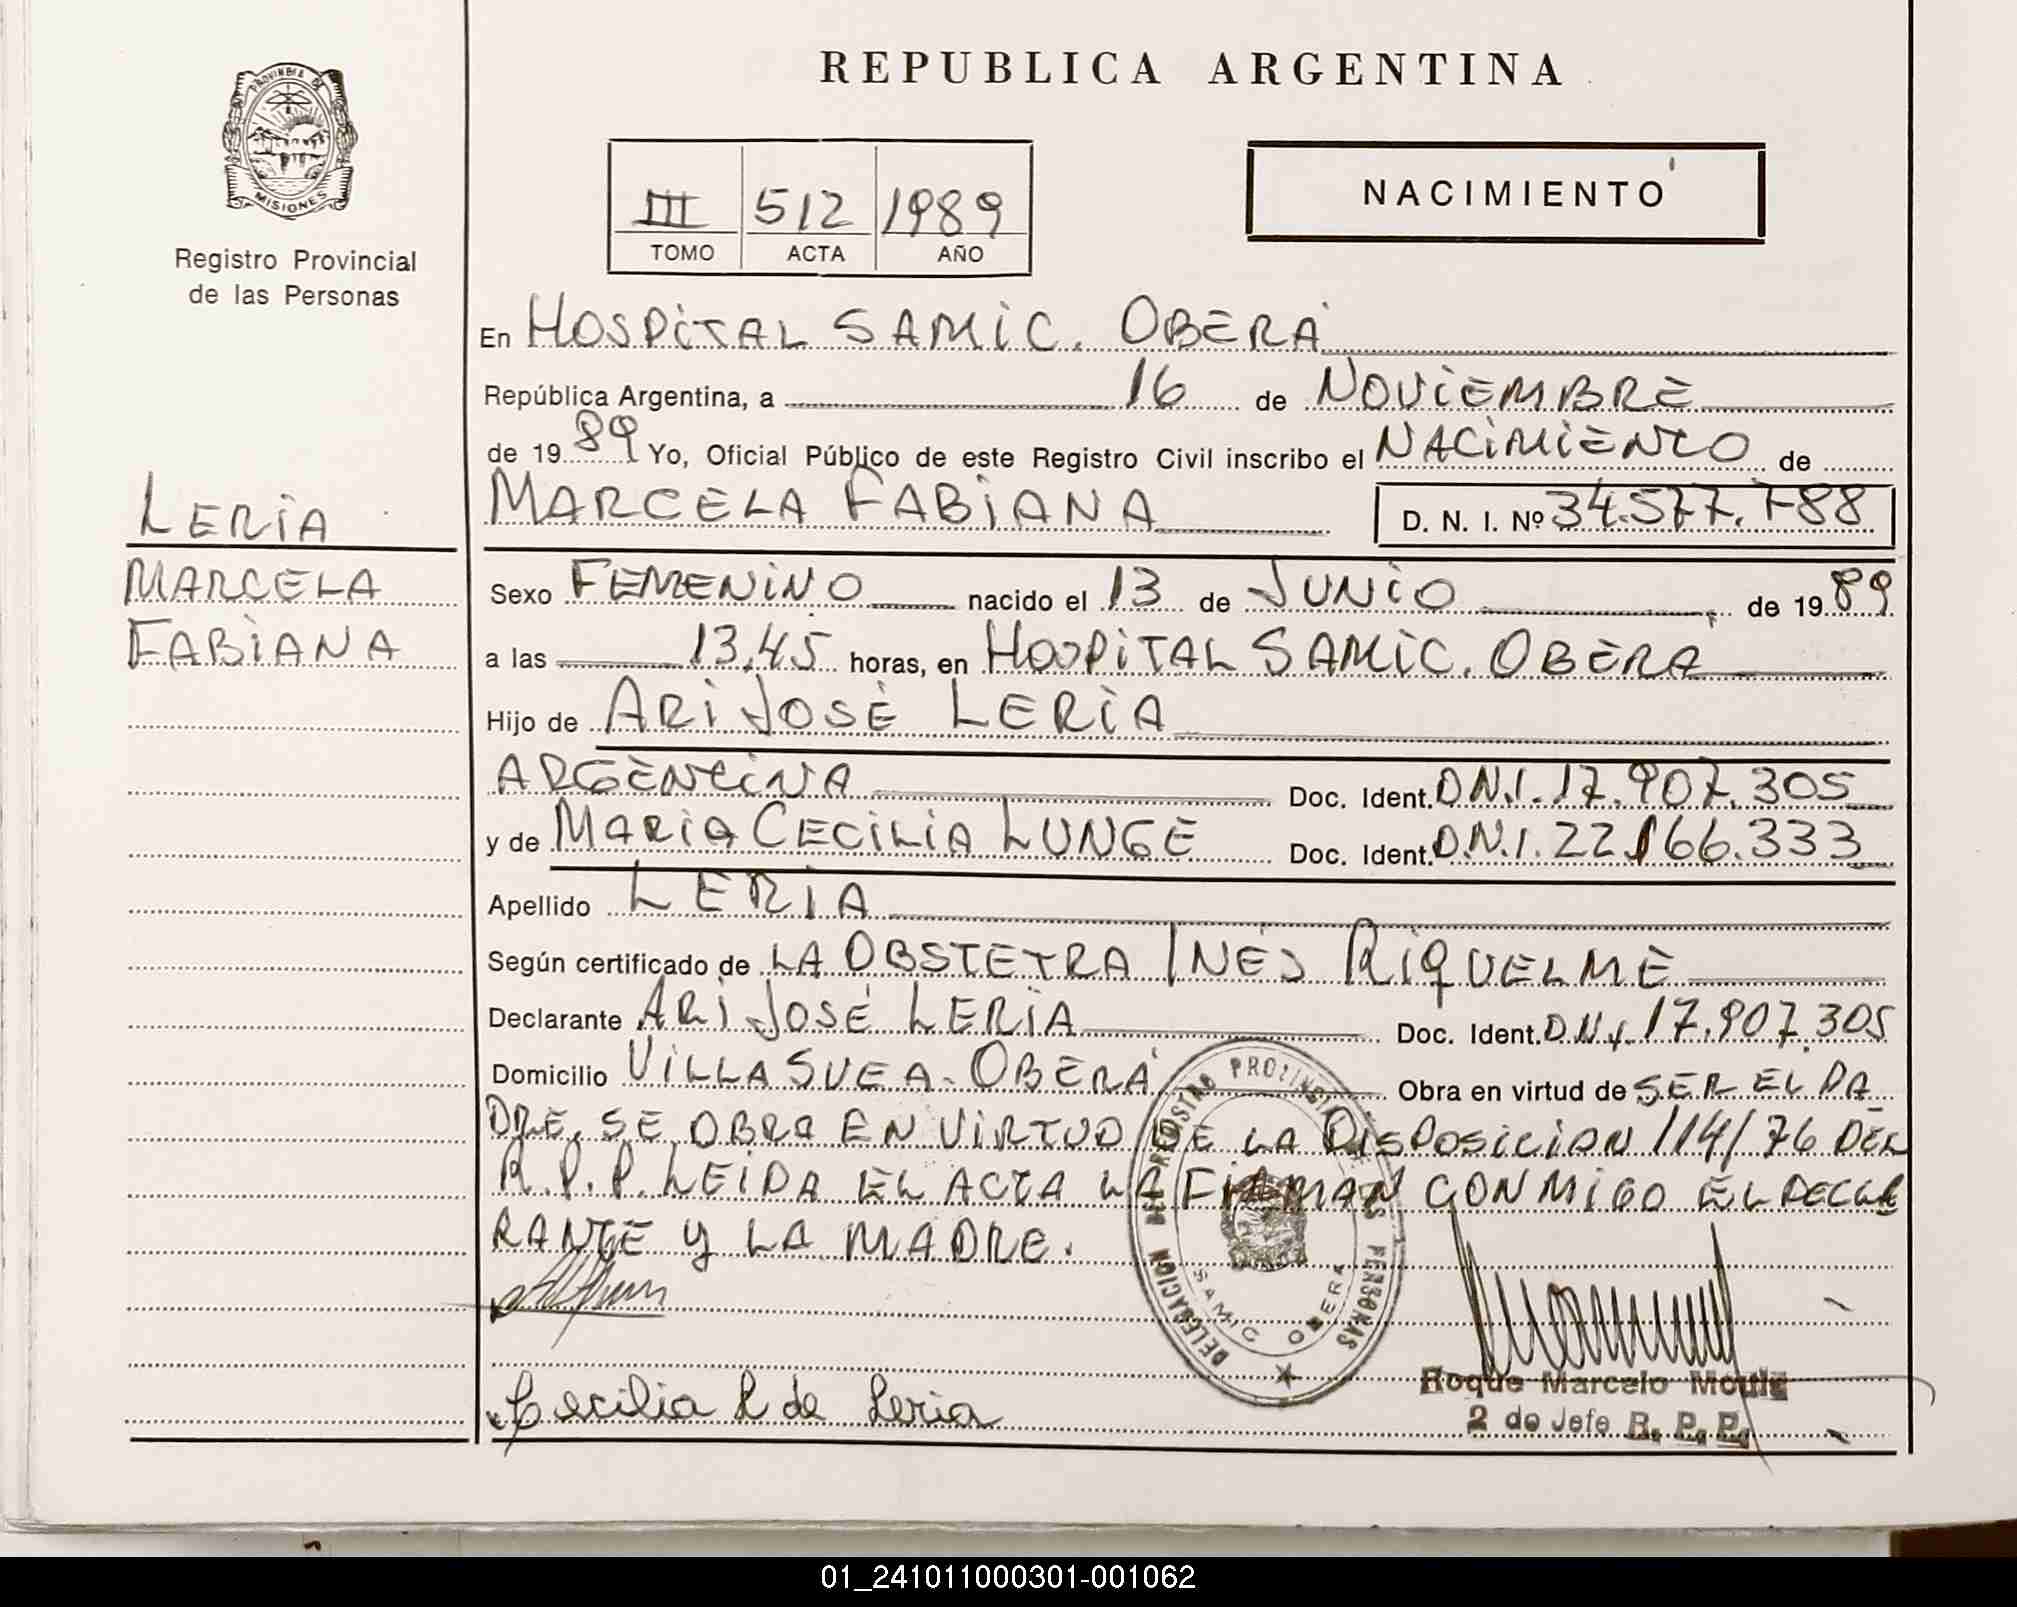 REPUBLICA ARGENTINA
PROVINCIA DE
MISIONES
Registro Provincial
de las Personas
NACIMIENTO
III 512 1989
TOMO ACTA AÑO
En HOSPITAL SAMIC. OBERÁ
República Argentina, a 16 de NOVIEMBRE
de 1989 Yo, Oficial Público de este Registro Civil inscribo el NACIMIENTO de
MARCELA FABIANA D. N. I. Nº 34.577.788
LERIA
MARCELA
FABIANA
Sexo FEMENINO nacido el 13 de JUNIO de 1989
a las 13,45 horas, en HOSPITAL SAMIC. OBERA
Hijo de ARI JOSÉ LERIA
ARGENTINA Doc. Ident. D.N.I. 17.907.305
y de MARIA CECILIA LUNGE Doc. Ident. D.N.I. 22.166.333
Apellido LERIA
Según certificado de LA OBSTETRA INÉS RIQUELME
Declarante ARI JOSÉ LERIA Doc. Ident. D.N.I. 17.907.305
Domicilio VILLA SUEA. OBERÁ Obra en virtud de SER EL PA
DRE. SE OBRA EN VIRTUD DE LA DISPOSICION 114/76 DEL
R.P.P. LEIDA EL ACTA LA FIRMAN CONMIGO EL DECLA
RANTE Y LA MADRE.
DELEGACION DEL REGISTRO PROVINCIAL DE LAS PERSONAS
SAMIC OBERA
Cecilia L de Leria
Roque Marcelo
2 do Jefe R. P. P.
01_241011000301-001062